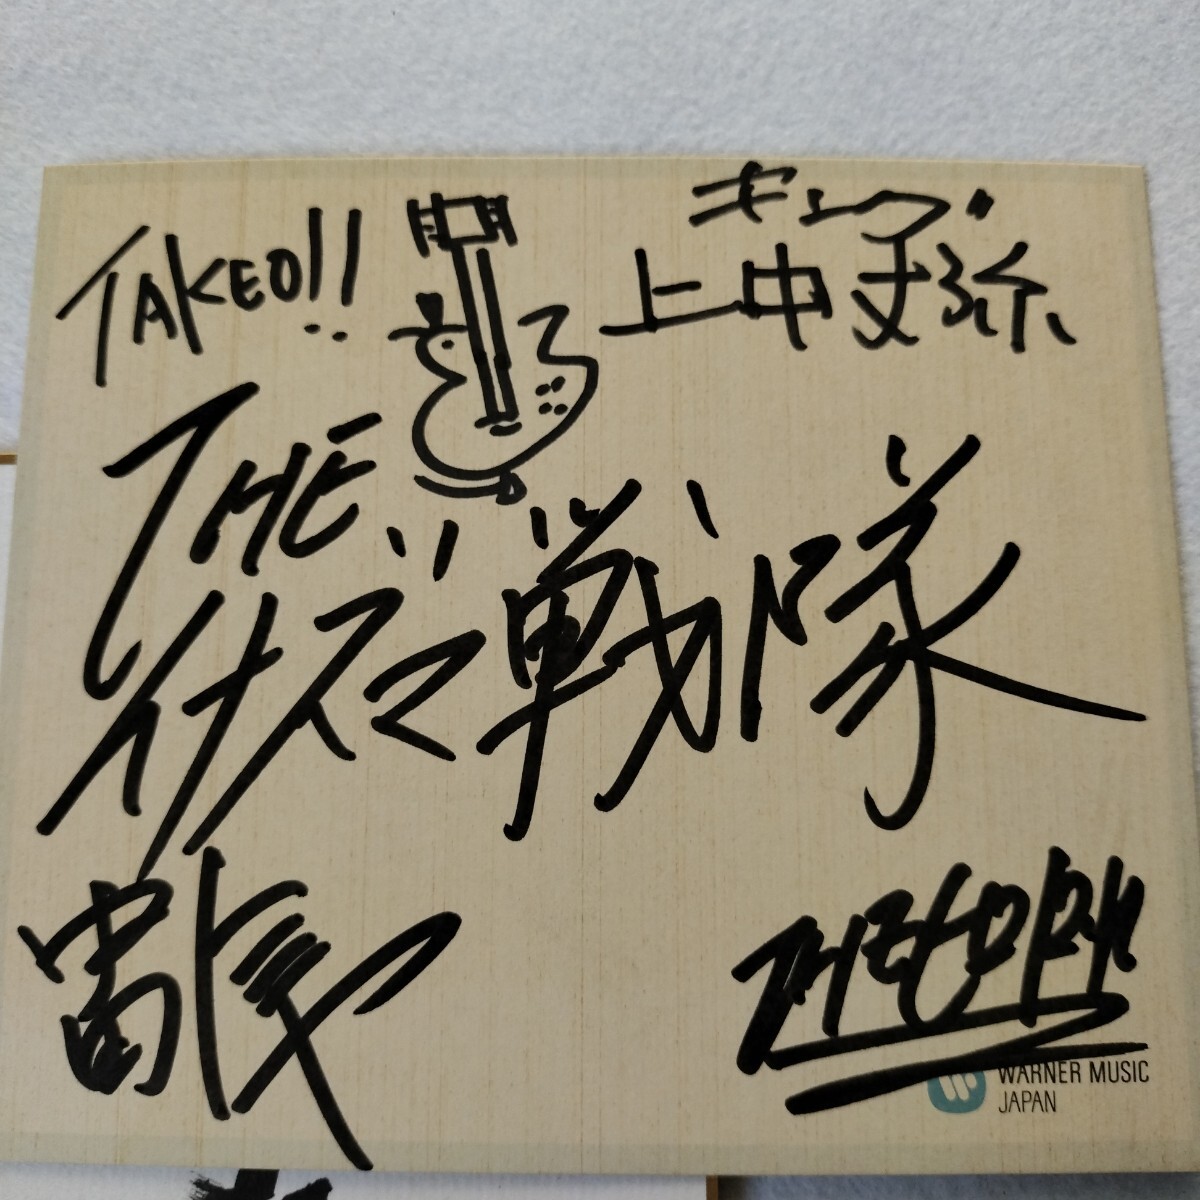 TAKEO!!
キューブ
上中丈弥
THE
イナズマ戦隊
WARNER MUSIC
JAPAN